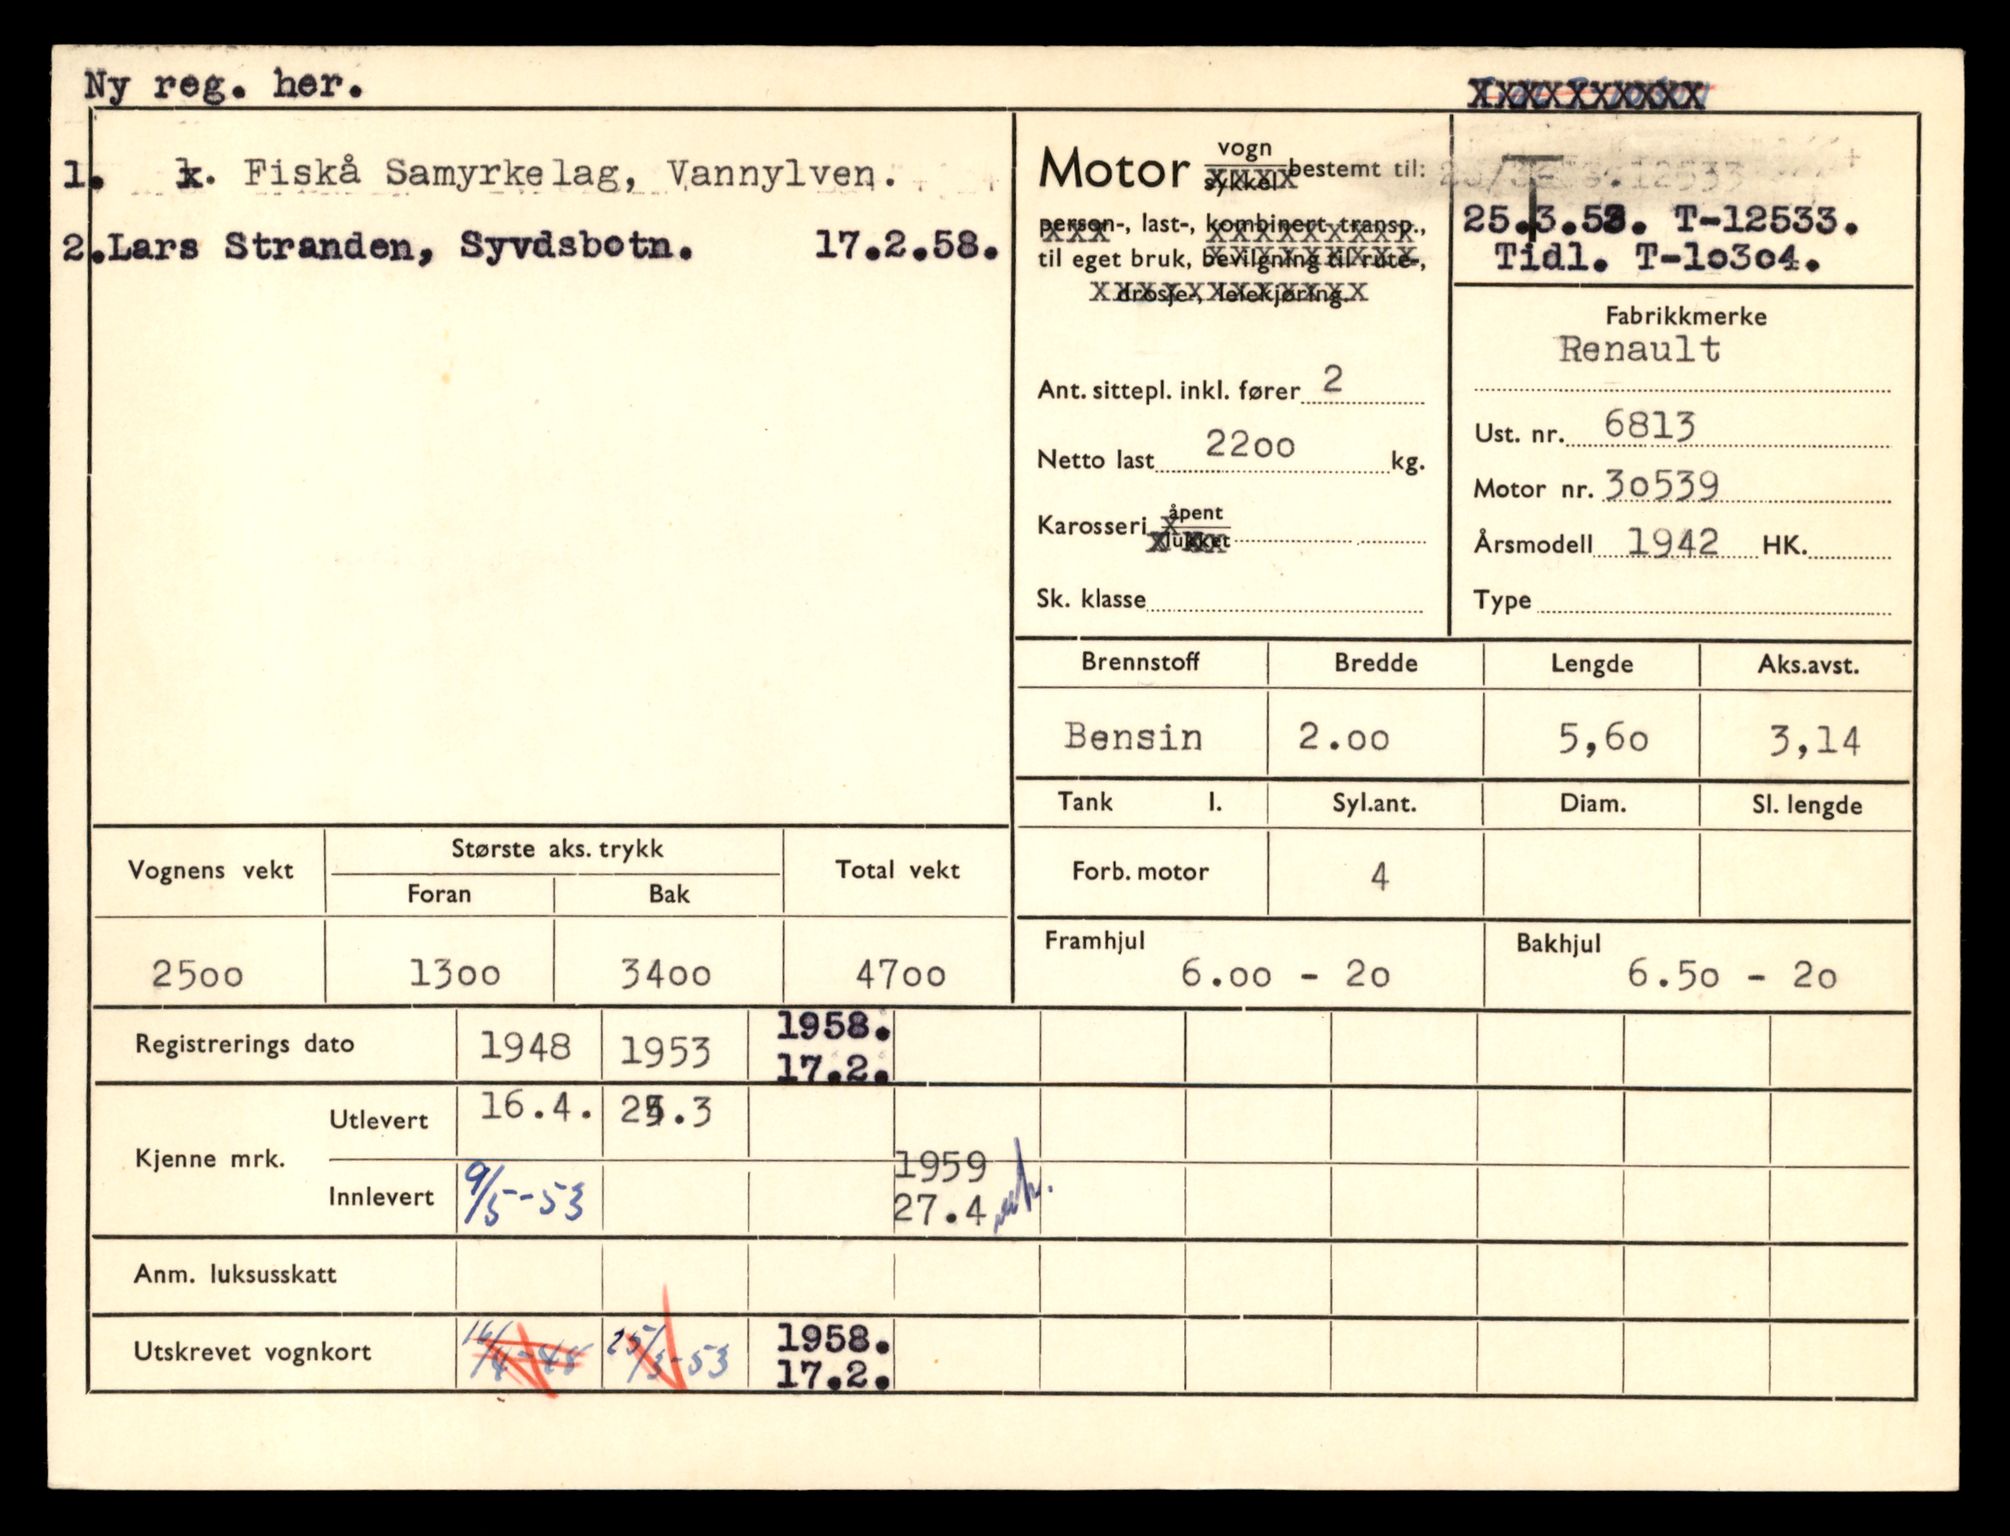 Ny reg. her.
1. x. Fiskå Samyrkelag, Vannylven.
2. Lars Stranden, Syvdsbotn. 17.2.58.
Motor vogn sykkel bestemt til:
person-, last-, kombinert transp.,
til eget bruk, bevilgning til rute-,
drosje-, leiekjøring.
Ant. sittepl. inkl. fører 2
Netto last 2200 kg.
Karosseri åpent lukket
Sk. klasse
T
25.3.53. T-12533.
Tidl. T-10304.
Fabrikkmerke
Renault
Ust. nr. 6813
Motor nr. 30539
Årsmodell 1942 HK.
Type
Brennstoff Bredde Lengde Aks.avst.
Bensin 2.00 5,60 3,14
Tank l. Syl.ant. Diam. Sl. lengde
Forb. motor 4
Framhjul 6.00 - 20 Bakhjul 6.50 - 20
Vognens vekt Største aks. trykk Total vekt
Foran Bak
2500 1300 3400 4700
Registrerings dato 1948 1953 1958. 17.2.
Kjenne mrk. Utlevert 16.4. 25.3
Innlevert 9/5-53 1959 27.4
Anm. luksusskatt
Utskrevet vognkort 16/4-48 25/3-53 1958. 17.2.